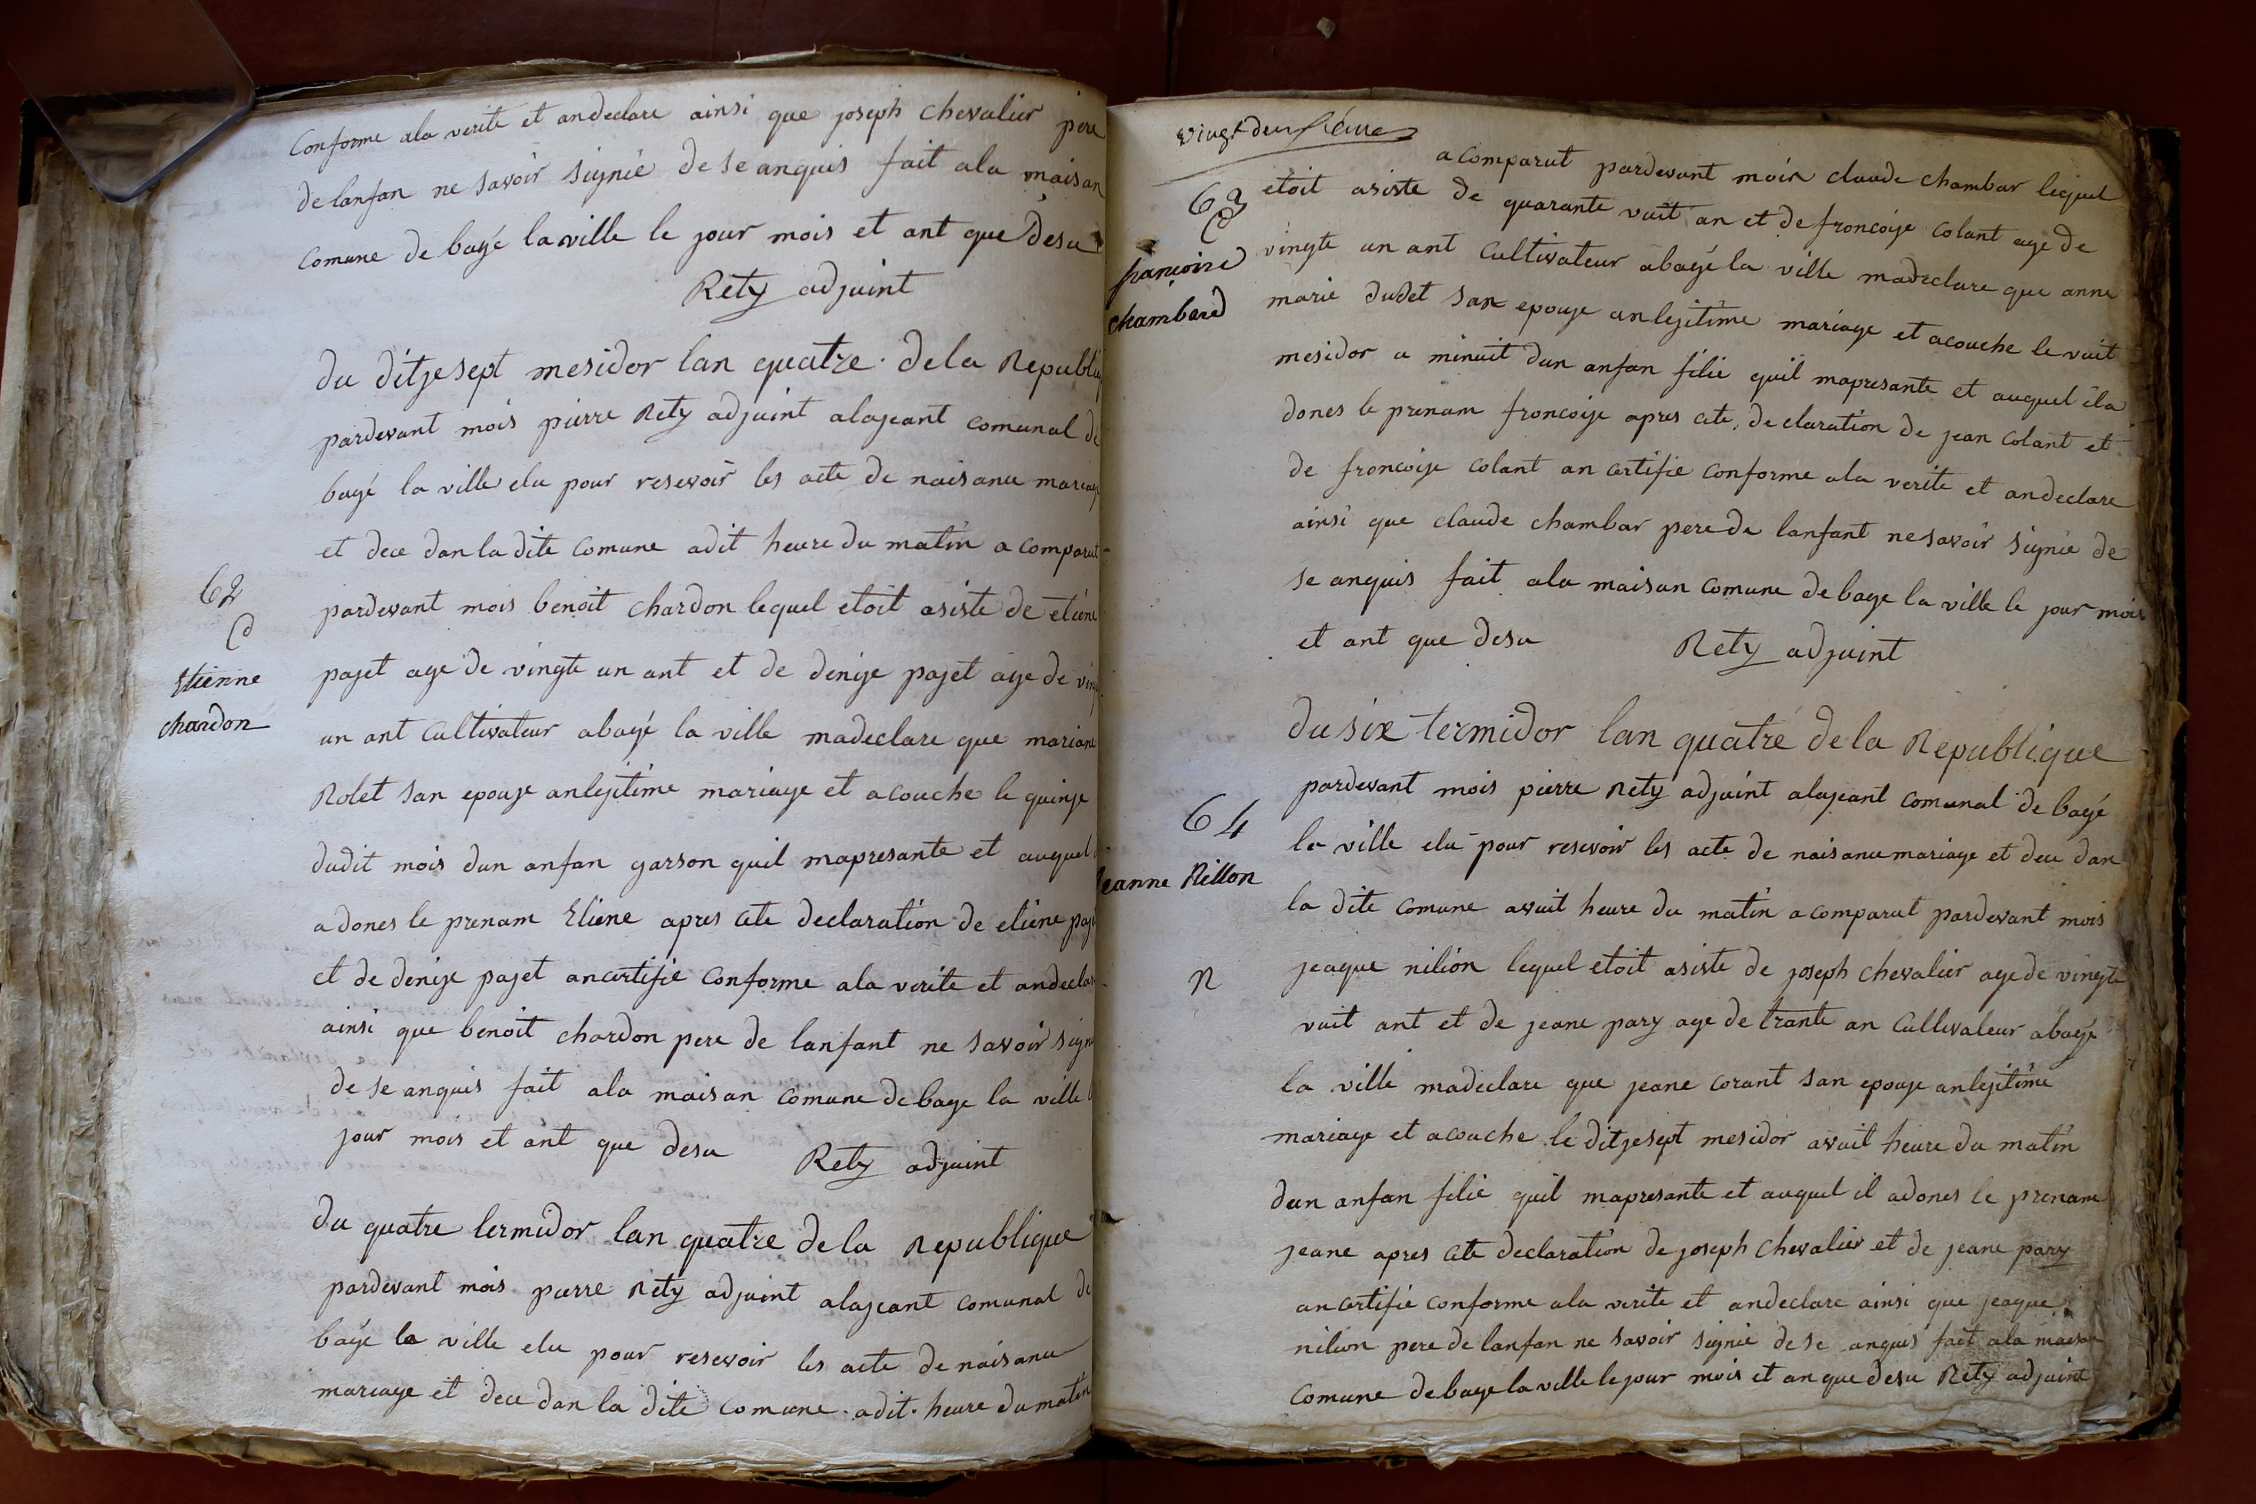 Conforme ala verite et andeclare ainsi que joseph chevalier pere
de lanfan ne savoir signié de se anquis fait ala maison
comune de bagé la ville le jour mois et ant que desu
Rety adjuint
du ditjesept mesidor lan quatre de la Republi
pardevant mois pierre Rety adjuint alajeant comunal de
bagé la ville elu pour resevoir les acte de naisanu mariage
et dece dan la dite comune adit heure du matin a comparut
62
pardevant mois benoit chardon lequel etoit asiste de etiene
Etienne
pajet age de vingte un ant et de denije pajet age de ving
chardon
un ant cultivateur abagé la ville madeclare que mariane
Rolet san epouje anlejitime mariage et acouche le quinje
dudit mois dun anfan garson quil mapresante et auquel
a dones le prenam Etiene apres cete declaration de etiene paje
et de denije pajet ancertifie conforme ala verite et andeclar
ainsi que benoit chardon pere de lanfant ne savoir sign
de se anquis fait ala maisan comune de bage la ville
jour mois et ant que desu Rety adjuint
du quatre termidor lan quatre de la Republique
pardevant mois pierre Rety adjuint alajeant comunal de
bagé la ville elu pour resevoir les acte de naisanu
mariage et dece dan la dite comune adit heure du matin
vingt deuxième
a comparut pardevant moi claude chambar lequel
63
etoit asiste de quarante vuit an et de francoije colant age de
francoise
vingte un ant cultivateur abagé la ville madeclare que anne
chambard
marie dudet san epouje anlejitime mariage et acouche le vuit
mesidor a minuit dun anfan filie quil mapresante et auquel ila
dones le prenam francoije apres cete declaration de jean colant et
de francoije colant an certifie conforme ala verite et andeclare
ainsi que claude chambar pere de lanfant ne savoir signie de
se anquis fait ala maisan comune de bage la ville le jour mois
et ant que desu Rety adjuint
du six termidor lan quatre de la Republique
pardevant mois pierre Rety adjuint alajeant comunal de bagé
64
la ville elu pour resevoir les acte de naisanu mariage et dece dan
Jeanne Nillon
la dite comune avuit heure du matin a comparut pardevant mois
n
jeaque nilion lequel etoit asiste de joseph chevalier age de vingte
vuit ant et de jeane pary age de trante an cultivateur abagé
la ville madeclare que jeane corant san epouje anlejitime
mariage et acouche le ditjesept mesidor avuit heure du matin
dun anfan filie quil mapresante et auquel il adones le prenam
jeane apres cete declaration de joseph chevalier et de jeane pary
an certifie conforme ala verite et andeclare ainsi que jeaque
nilion pere de lanfan ne savoir signie de se anquis fait ala maison
comune de bage la ville le jour mois et an que desu Rety adjuint